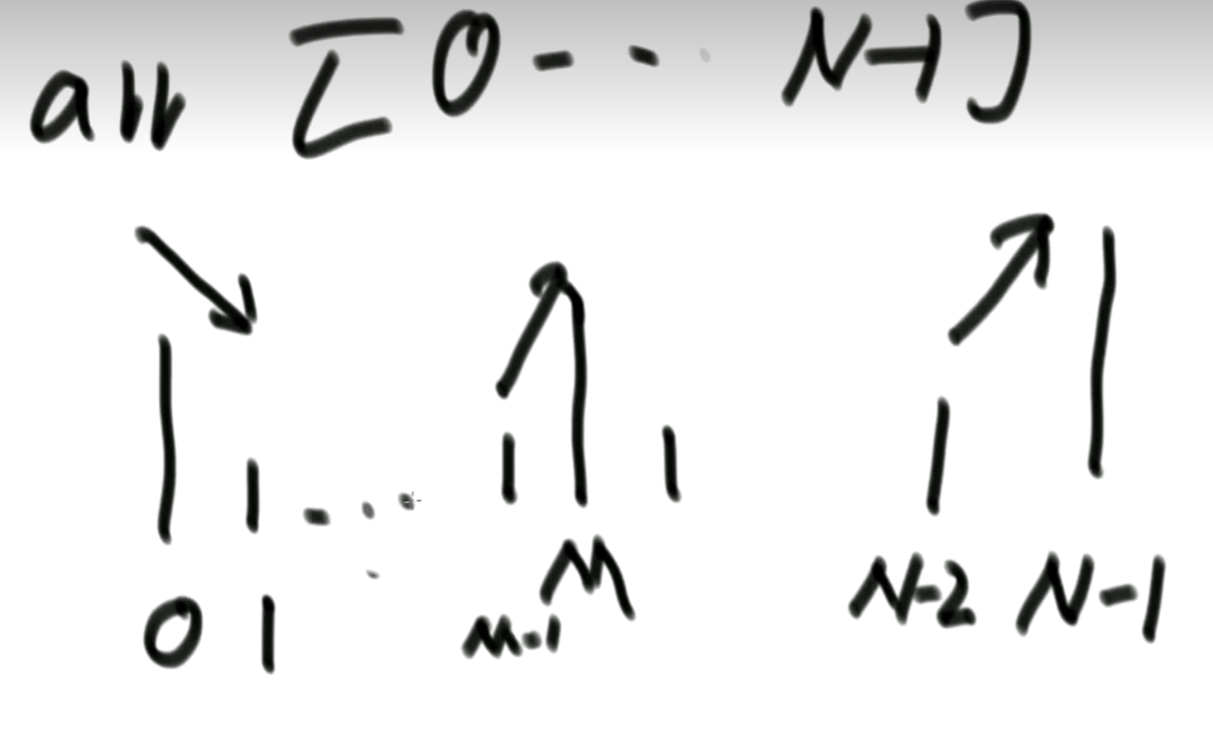 all [0 - - . N-1]
0 1 M-1 M N-2 N-1